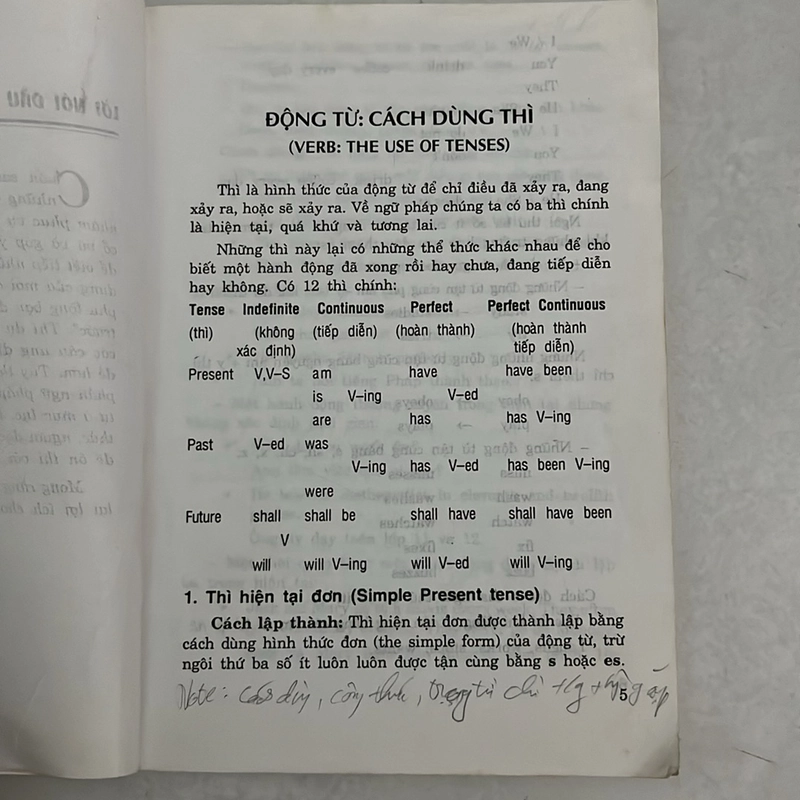 ĐỘNG TỪ: CÁCH DÙNG THÌ
(VERB: THE USE OF TENSES)
Thì là hình thức của động từ để chỉ điều đã xảy ra, đang
xảy ra, hoặc sẽ xảy ra. Về ngữ pháp chúng ta có ba thì chính
là hiện tại, quá khứ và tương lai.
Những thì này lại có những thể thức khác nhau để cho
biết một hành động đã xong rồi hay chưa, đang tiếp diễn
hay không. Có 12 thì chính:
Tense Indefinite Continuous Perfect Perfect Continuous
(thì) (không (tiếp diễn) (hoàn thành) (hoàn thành
xác định) tiếp diễn)
Present V,V–S am have have been
is V-ing V–ed
are has has V-ing
Past V–ed was
V-ing has V–ed has been V-ing
were
Future shall shall be shall have shall have been
V
will will V-ing will V–ed will V–ing
1. Thì hiện tại đơn (Simple Present tense)
Cách lập thành: Thì hiện tại đơn được thành lập bằng
cách dùng hình thức đơn (the simple form) của động từ, trừ
ngôi thứ ba số ít luôn luôn được tận cùng bằng s hoặc es.
Note: cách dùng, công thức, trạng từ chỉ
5